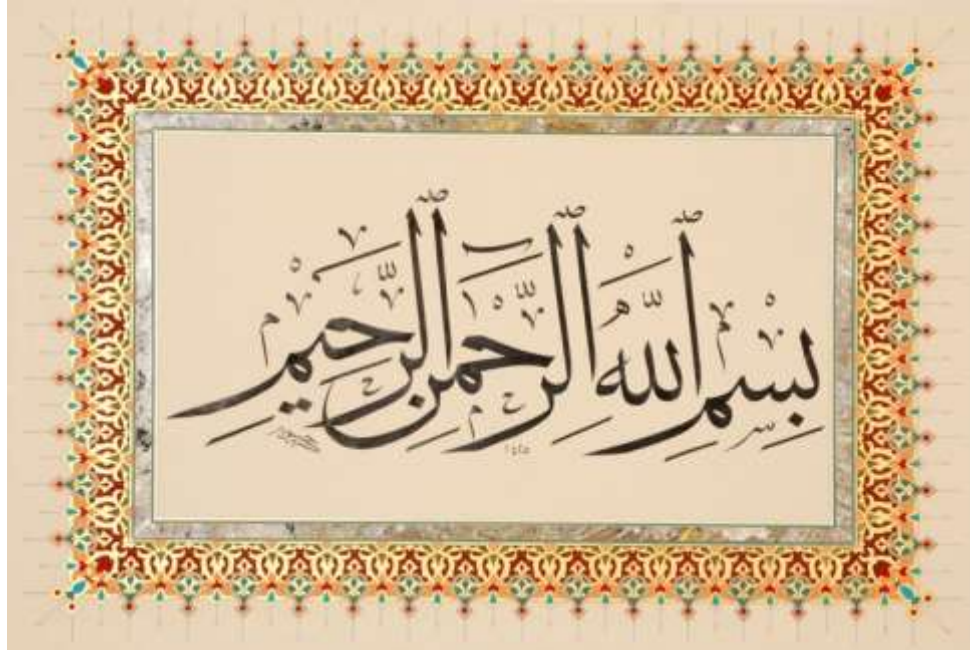 بِسْمِ ٱللَّهِ ٱلرَّحْمَٰنِ ٱلرَّحِيمِ
١٤١٥